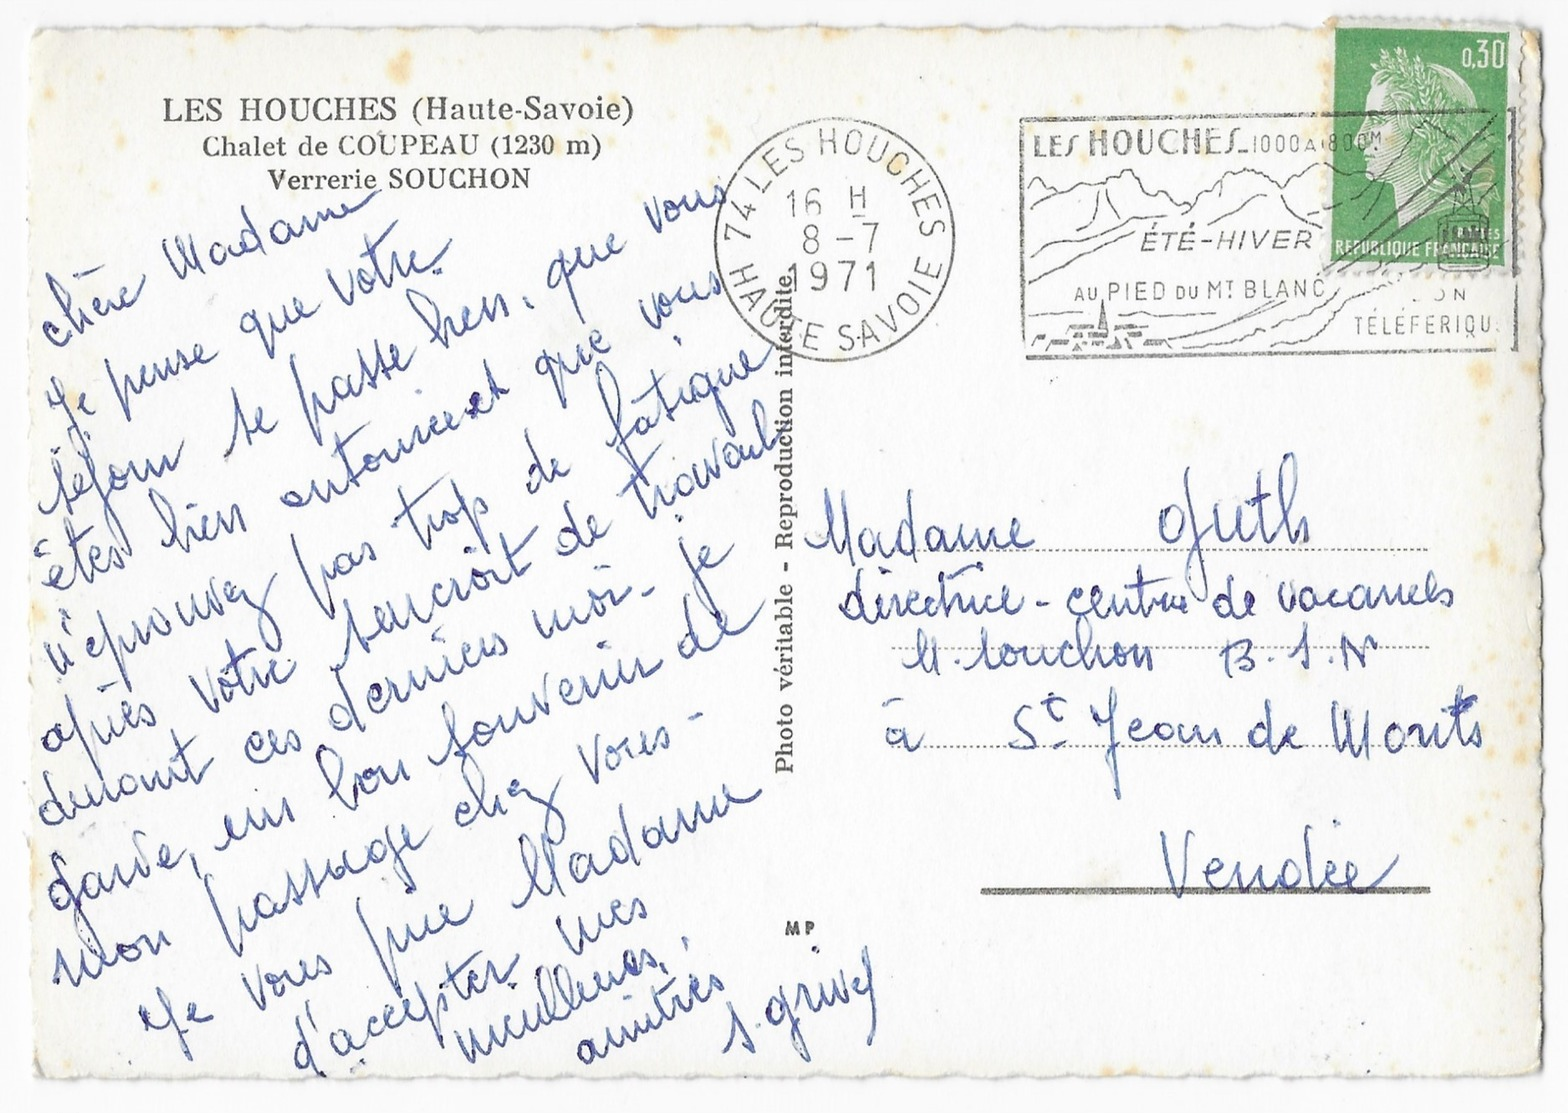 LES HOUCHES (Haute-Savoie)
Chalet de COUPEAU (1230 m)
Verrerie SOUCHON
chère Madame
Je pense que votre
séjour se passe bien, que vous
êtes bien entourée et que vous
n'éprouvez pas trop de fatigue
après votre surcroît de travail
durant ces derniers moi. je
garde, un bon souvenir de
mon passage chez vous -
Je vous prie Madame
d'accepter mes
meilleures
amitiés
S. Grivel
74 LES HOUCHES
16 H
8 -7
1971
HAUTE SAVOIE
LES HOUCHES_1000 A 1800M
ÉTÉ-HIVER
AU PIED DU MT BLANC
TÉLÉFERIQU
0,30
REPUBLIQUE FRANÇAISE
Photo véritable - Reproduction interdite
Madame Guth
directrice - centre de vacances
V. Souchon B.S.N
à St Jean de Monts
Vendée
MP